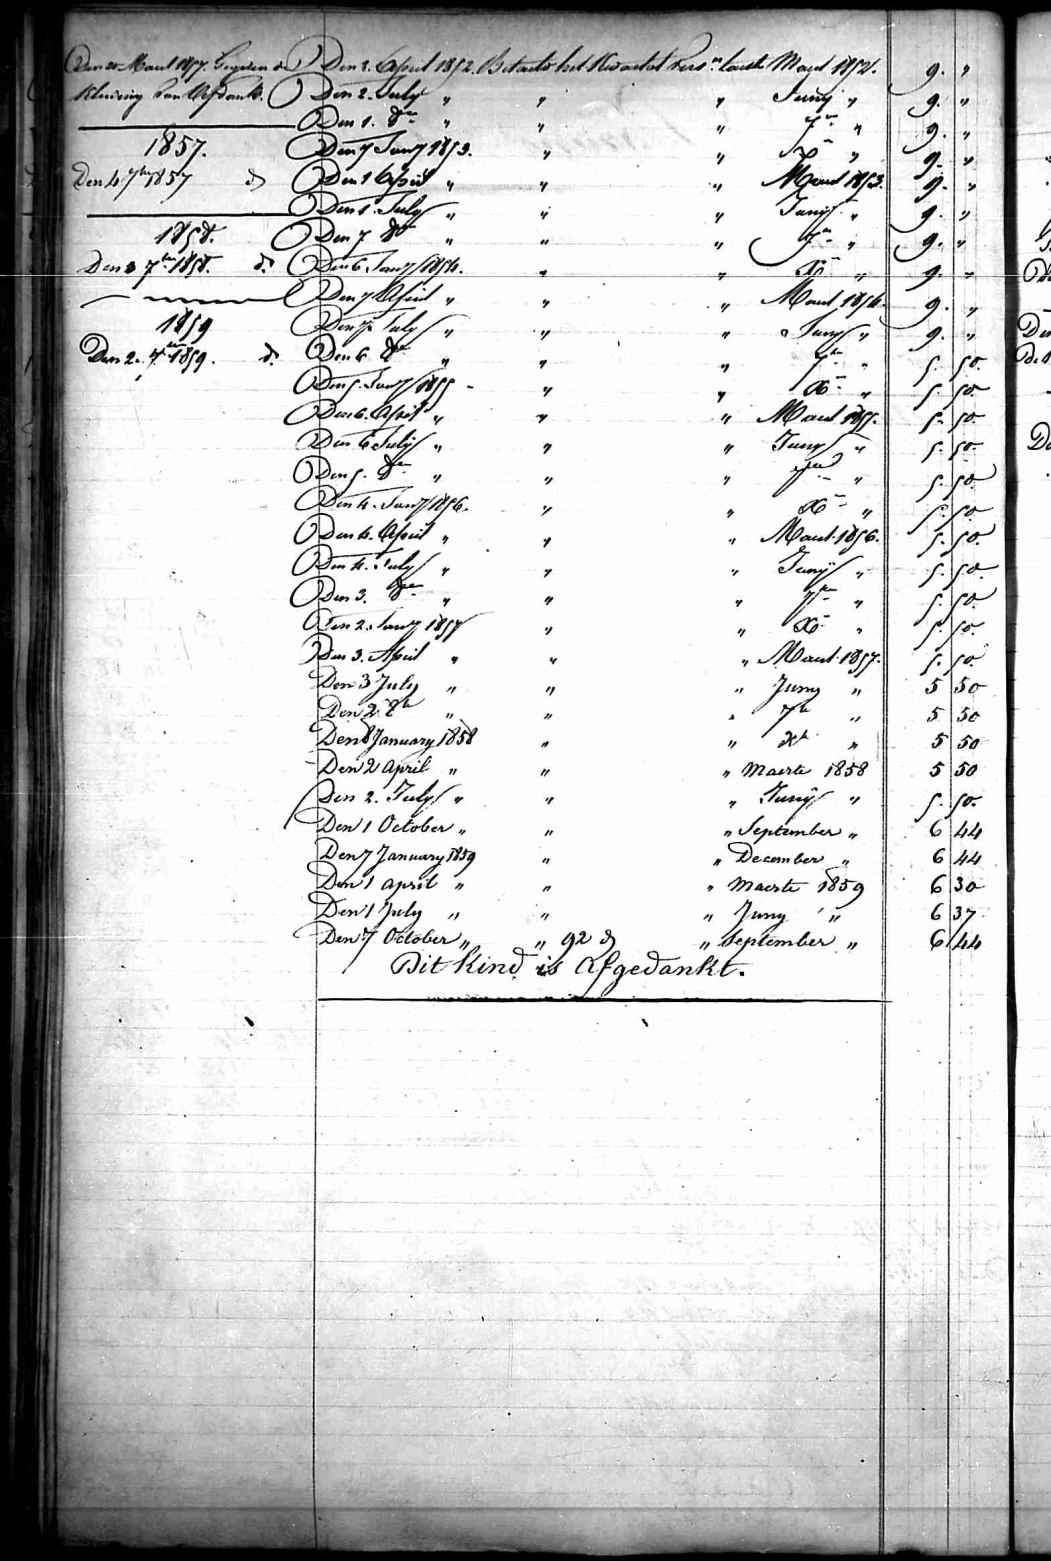 Den Maart 1857. Gegeven de
kleeding van Afdank.
1857.
Den 4 7ber 1857 do
1858.
Den 3 7ber 1858. do
1859
Den 2. 7ber 1859. do
Den 2. April 1852. Betaald het Kwartaal Maart 1852. 9. "
Den 2. July " " " Juny " 9. "
Den 1. 8br " " " 7br " 9. "
Den 7 Jany 1853. " " Xr " 9. "
Den 1 April " " " Maart 1853. 9. "
Den 1. July " " " Juny " 9. "
Den 7 8br " " " 7br " 9. "
Den 6. Jany 1854. " " Xr " 9. "
Den 7 April " " " Maart 1854. 9. "
Den 7 July " " " Juny " 9. "
Den 6 8br " " " 7br " 5. 50.
Den 5. Jany 1855 " " Xr " 5. 50.
Den 6. April " " " Maart 1855. 5. 50.
Den 6 July " " " Juny " 5. 50.
Den 5. 8br " " " 7br " 5. 50.
Den 4. Jany 1856. " " Xr " 5. 50.
Den 4. April " " " Maart 1856. 5. 50.
Den 4. July " " " Juny " 5. 50.
Den 3. 8br " " " 7br " 5. 50.
Den 2. Jany 1857 " " Xr " 5. 50.
Den 3. April " " " Maart 1857. 5. 50.
Den 3 July " " " Juny " 5 50
Den 2 8br " " " 7br " 5 50
Den 8 January 1858 " " Xbr " 5 50
Den 2 April " " " Maerte 1858 5 50
Den 2. July " " " Juny " 5. 50.
Den 1 October " " " September " 6 44
Den 7 January 1859 " " December " 6 44
Den 1 april " " " Maerte 1859 6 30
Den 1 July " " " Juny " 6 37
Den 7 October " " 92 d " September " 6 44
Dit kind is Afgedankt.